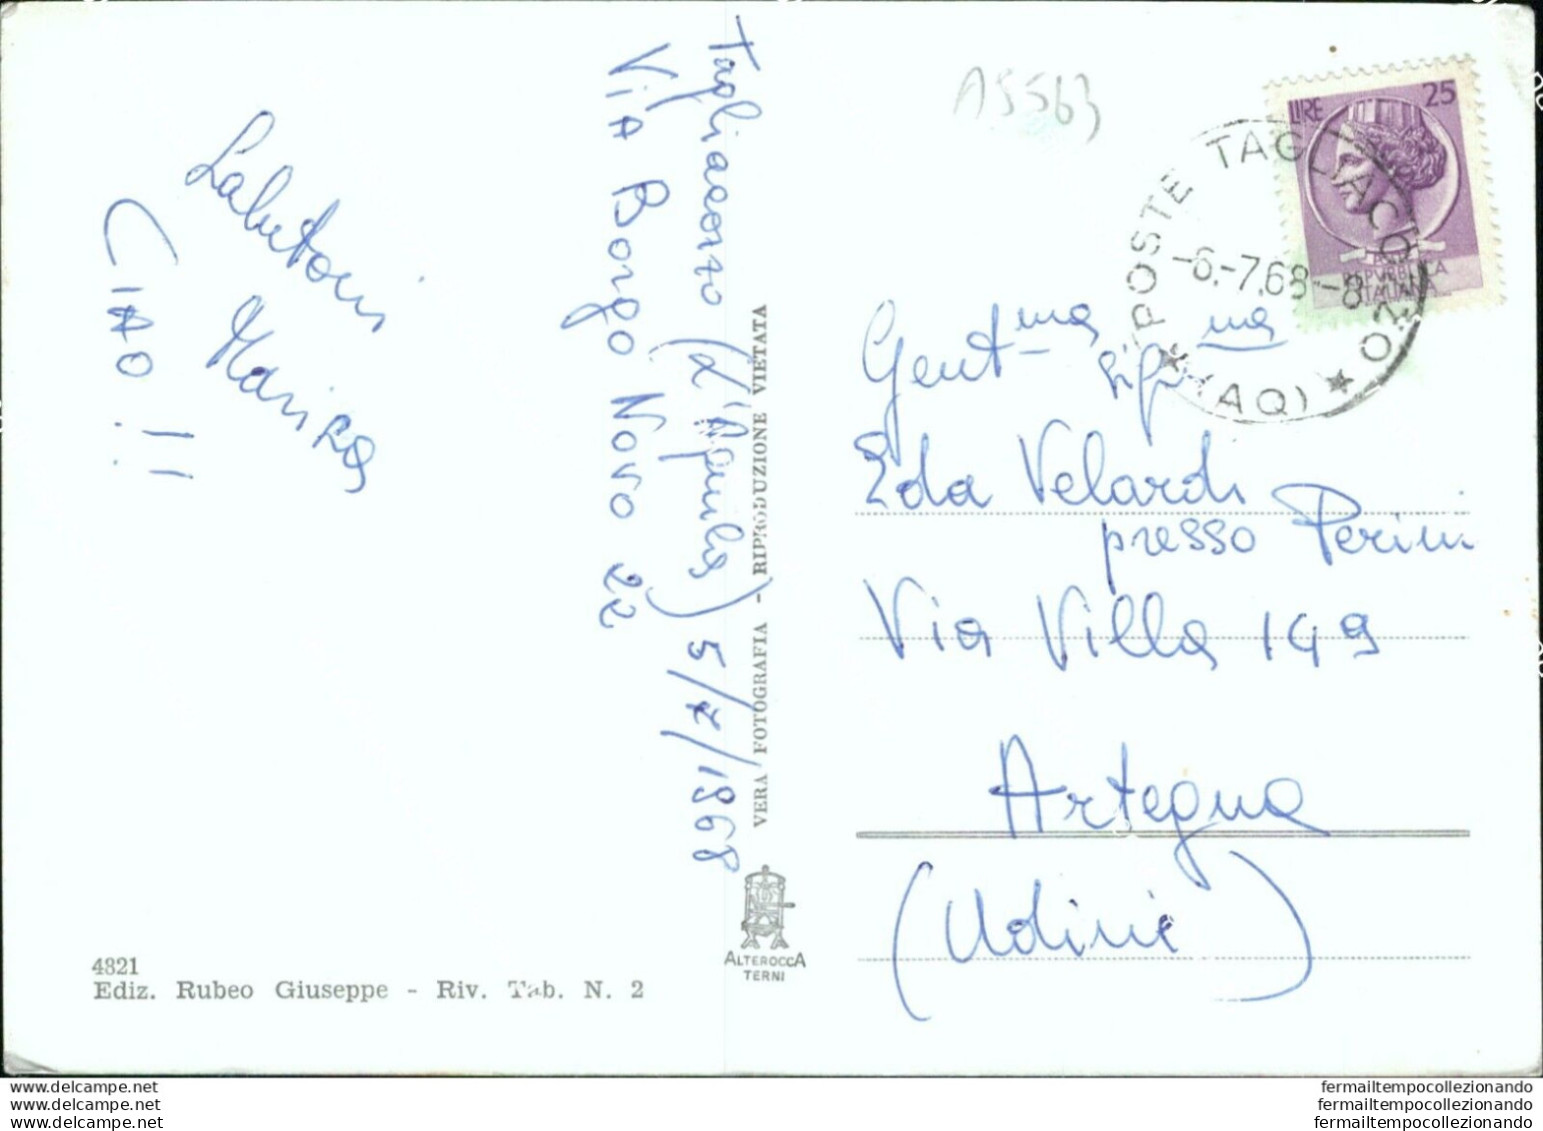 Salutoni
Marisa
CIAO !!
Tagliacozzo (L'Aquila) 5/7/1968
VIA Borgo Novo 22
VERA FOTOGRAFIA - RIPRODUZIONE VIETATA
ALTEROCCA
TERNI
4821
Ediz. Rubeo Giuseppe - Riv. Tab. N. 2
A5563
LIRE 25
REPUBBLICA
ITALIANA
POSTE TAGLIACOZZO
-6.-7.68-8
(AQ)
Gent.ma Sig.na
Eda Velardi
presso Perini
Via Villa 149
Artegna
(Udine)
www.delcampe.net
www.delcampe.net
www.delcampe.net
fermailtempocollezionando
fermailtempocollezionando
fermailtempocollezionando